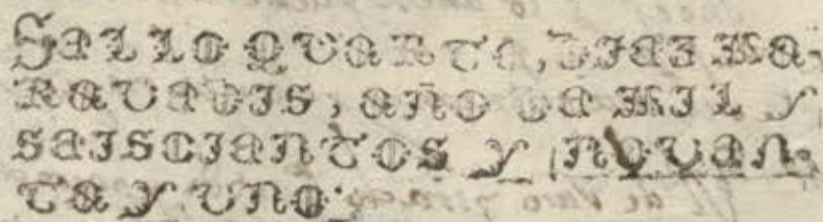 SELLO QVARTO, DIEZ MA-
RAVEDIS, AÑO DE MIL Y
SEISCIENTOS Y NOVEN-
TA Y VNO.